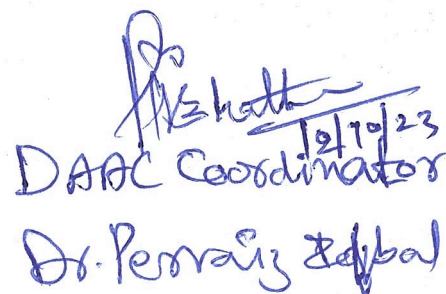 12/10/23
DAAC Coordinator
Dr. Pervaiz Iqbal